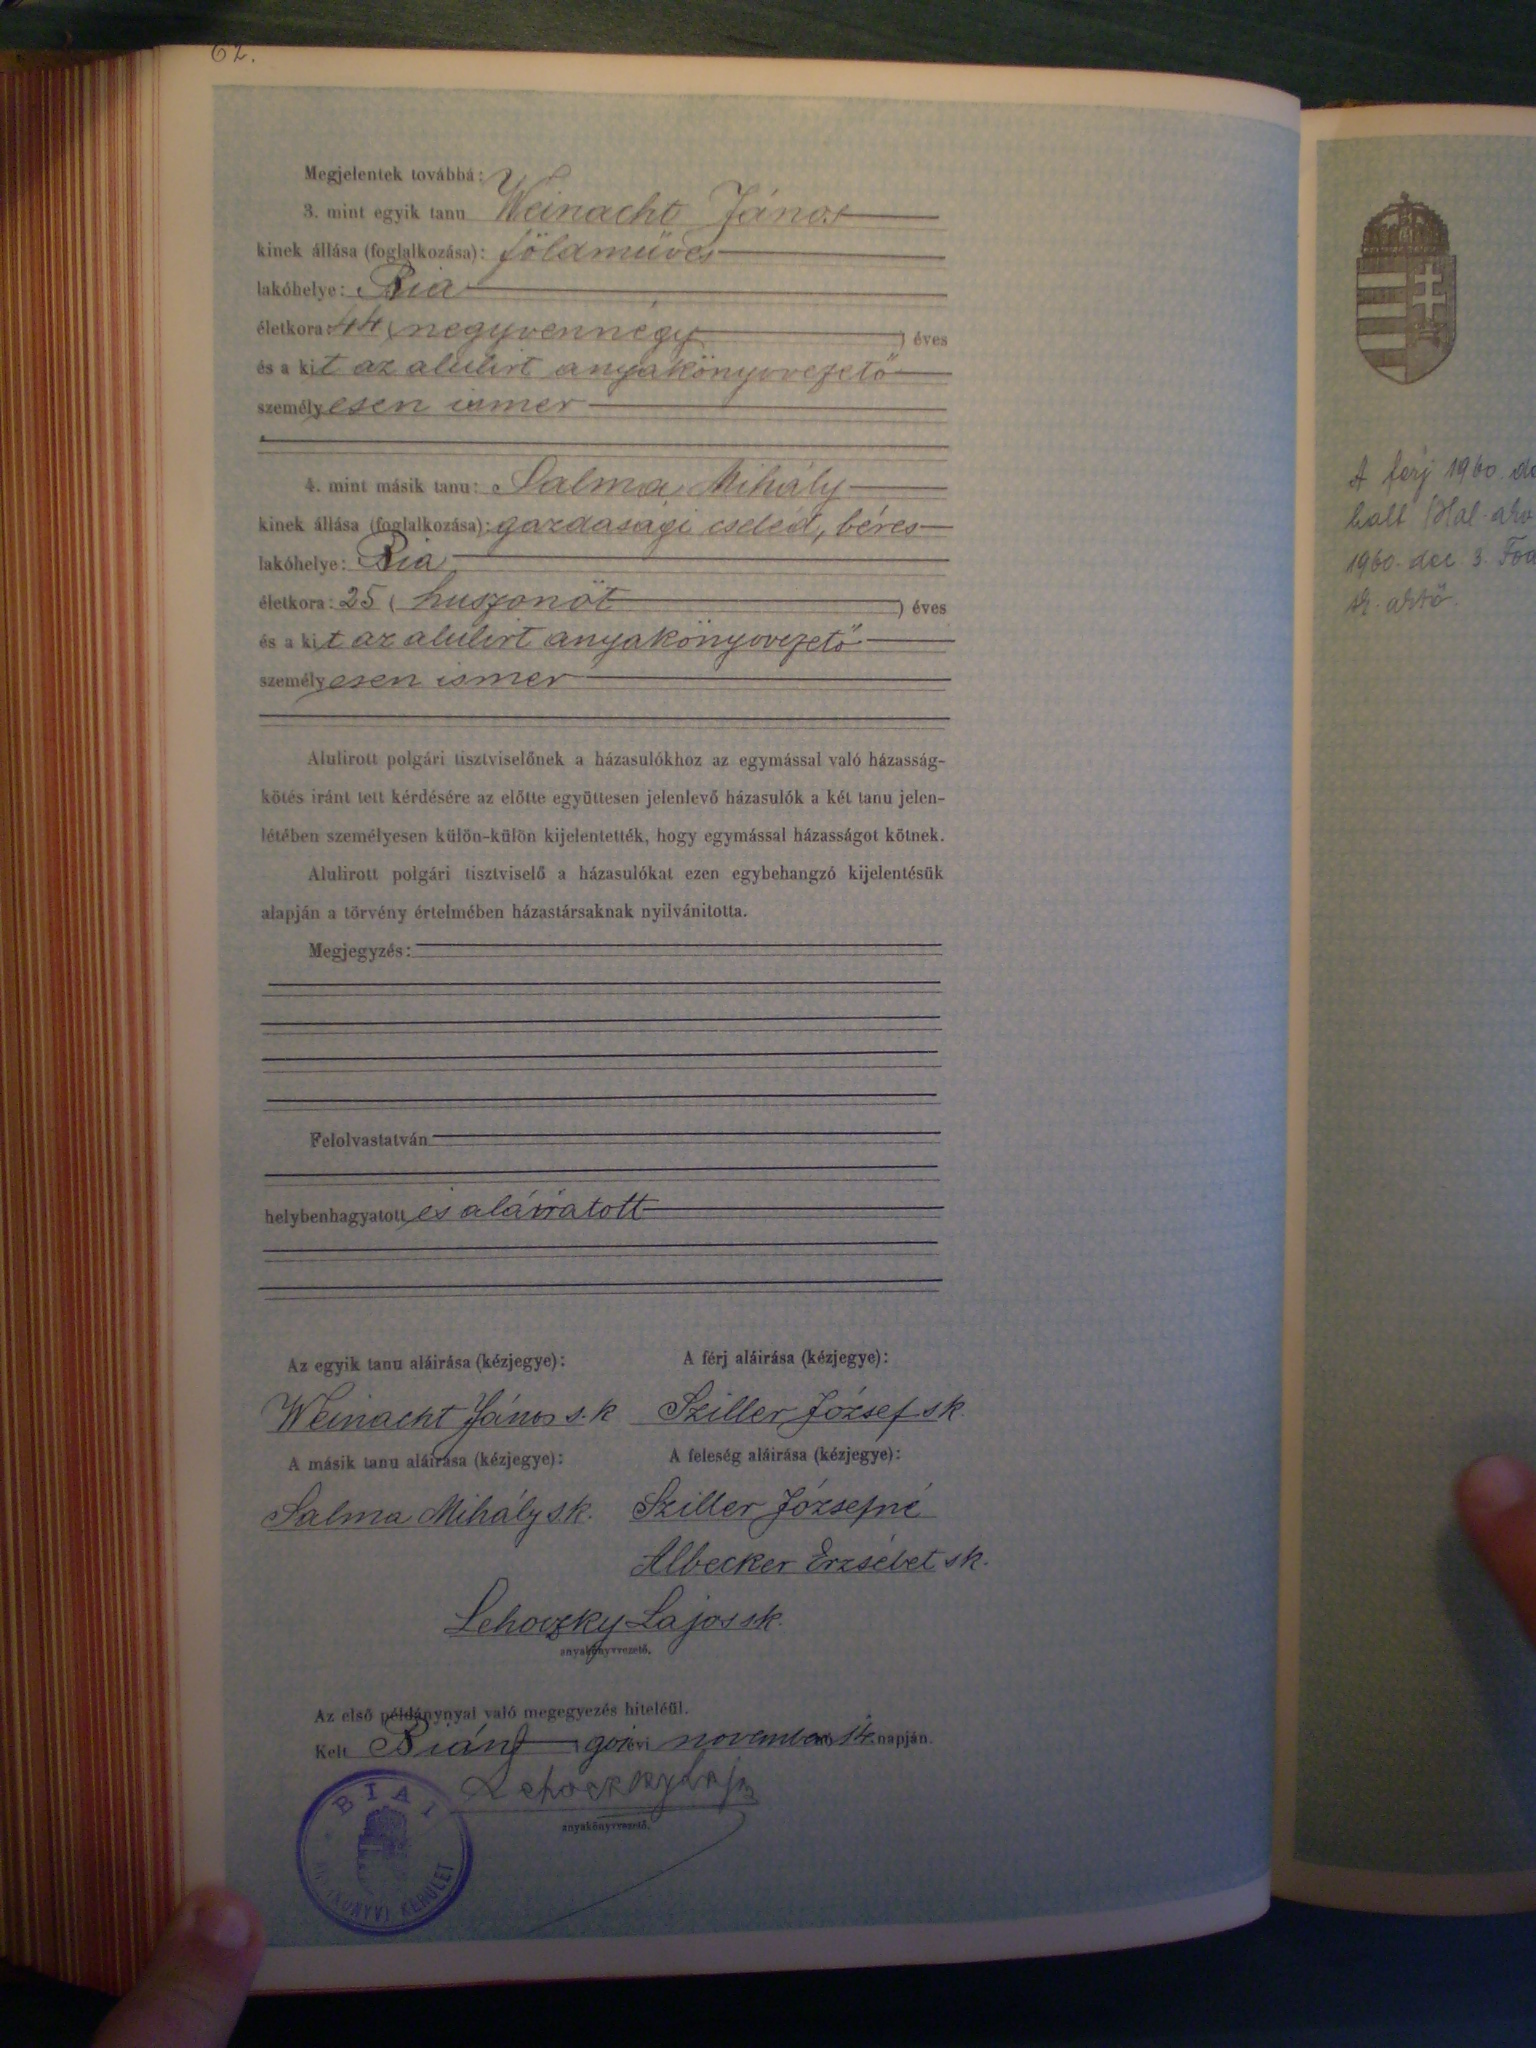 62.
Megjelentek továbbá:
3. mint egyik tanu Weinacht János
kinek állása (foglalkozása): földmüves
lakóhelye: Bia
életkora: 44 (negyvennégy) éves
és a kit az alulirt anyakönyvvezető
személyesen ismer
4. mint másik tanu: Salma Mihály
kinek állása (foglalkozása): gazdasági cseléd, béres
lakóhelye: Bia
életkora: 25 (huszonöt) éves
és a kit az alulirt anyakönyvvezető
személyesen ismer
Alulirott polgári tisztviselőnek a házasulókhoz az egymással való házasság-
kötés iránt tett kérdésére az előtte együttesen jelenlevő házasulók a két tanu jelen-
létében személyesen külön-külön kijelentették, hogy egymással házasságot kötnek.
Alulirott polgári tisztviselő a házasulókat ezen egybehangzó kijelentésük
alapján a törvény értelmében házastársaknak nyilvánitotta.
Megjegyzés:
Felolvastatván
helybenhagyatott és aláiratott
Az egyik tanu aláirása (kézjegye): A férj aláirása (kézjegye):
Weinacht János s.k Sziller József sk.
A másik tanu aláirása (kézjegye): A feleség aláirása (kézjegye):
Salma Mihály sk. Sziller Józsefné
Albecker Erzsébet sk.
Lehoczky Lajos sk.
anyakönyvvezető.
Az első példánynyal való megegyezés hiteléül.
Kelt Bián november 14. napján.
Lehoczky Lajos
anyakönyvvezető.
BIAI
ANYAKÖNYVI KERÜLET
A férj 1960. de
halt (Hal. akv
1960. dec 3.